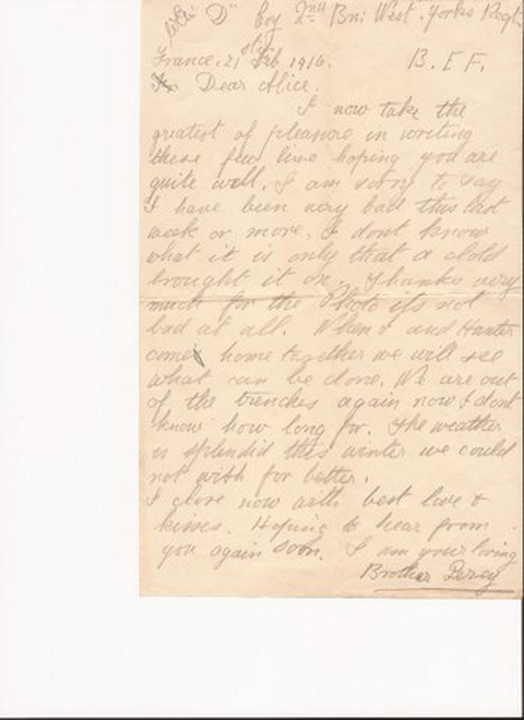 "D" Coy 2nd Bn: West. Yorks Regt
France. 21st Feb 1916. B. E. F.
Dear Alice.
I now take the
greatest of pleasure in writing
these few line hoping you are
quite well. I am sorry to say
I have been very bad this last
week or more. I dont know
what it is only that a cold
brought it on. Thanks very
much for the Photo its not
bad at all. When I and Hunter
comes home together we will see
what can be done. We are out
of the trenches again now I dont
know how long for. The weather
is splendid this winter we could
not wish for better.
I close now with best love &
kisses. Hoping to hear from
you again soon. I am your loving
Brother Percy